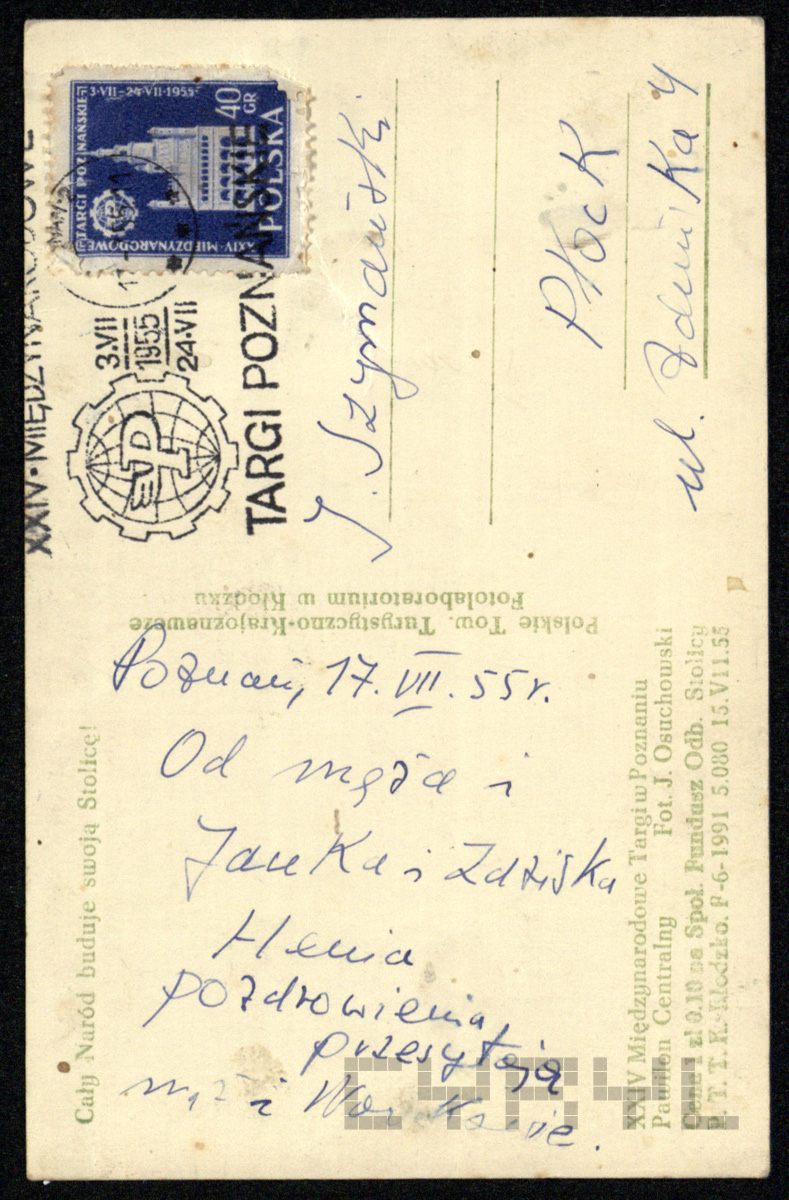 3·VII–24·VII·1955
TARGI POZNAŃSKIE
XXIV·MIĘDZYNARODOWE
40
GR
POLSKA
XXIV·MIĘDZYNARODOWE
3·VII
1955
24·VII
TARGI POZNAŃSKIE
J. Szymański
Płock
ul. 4
Polskie Tow. Turystyczno-Krajoznawcze
Fotolaboratorium w Kłodzku
Cały Naród buduje swoją Stolicę!
Poznań, 17. VII. 55r.
Od męża i
Janka i Zdziśka
Henia
pozdrowienia
przesyłają
mąż i
XXIV Międzynarodowe Targi w Poznaniu
Pawilon Centralny Fot. J. Osuchowski
Cena 1 zł 0.10 na Społ. Fundusz Odb. Stolicy
P. T. T. K. Kłodzko. F-6-1991 5.080 15.VII.55
CYRYL